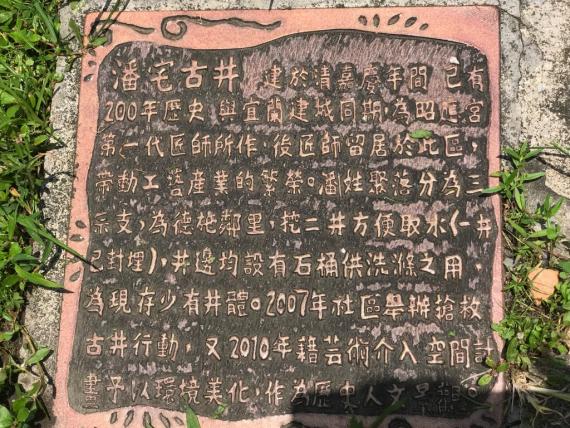 潘宅古井 建於清嘉慶年間 已有
200年歷史 與宜蘭建城同期，為昭應宮
第一代匠師所作，後匠師留居於此區，
帶動工藝產業的繁榮。潘姓聚落分為三
系支，為德柂鄰里，挖二井方便取水（一井
已封埋），井邊均設有石桶供洗滌之用，
為現存少有井體。2007年社區舉辦搶救
古井行動，又2010年藉芸術介入空間計
畫予以環境美化，作為歷史人文